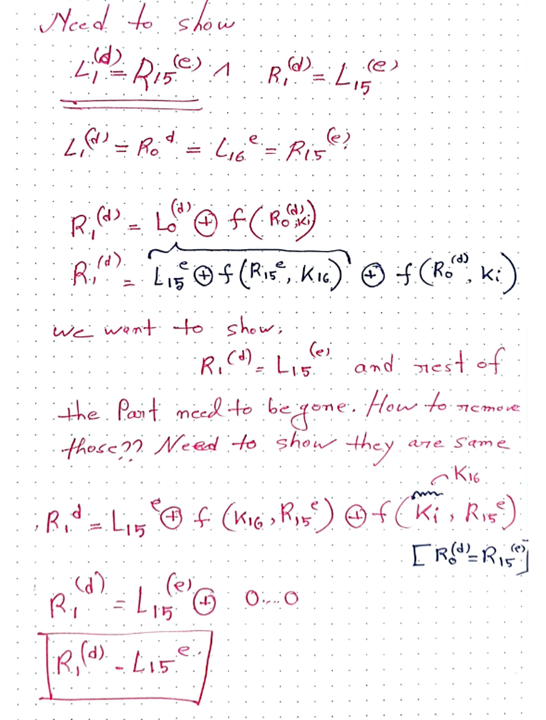 Need to show
L₁^(d) = R₁₅^(e) ∧ R₁^(d) = L₁₅^(e)
L₁^(d) = R₀^d = L₁₆^e = R₁₅^(e)?
R₁^(d) = L₀^(d) ⊕ f(R₀^(d), ki)
R₁^(d) = L₁₅^e ⊕ f(R₁₅^e, K₁₆) ⊕ f(R₀^(d), ki)
we want to show,
R₁^(d) = L₁₅^(e) and rest of
the Part need to be gone. How to remove
those?? Need to show they are same
K₁₆
R₁^d = L₁₅^e ⊕ f(K₁₆, R₁₅^e) ⊕ f(Ki, R₁₅^e)
[R₀^(d) = R₁₅^(e)]
R₁^(d) = L₁₅^(e) ⊕ 0....0
R₁^(d) - L₁₅^e